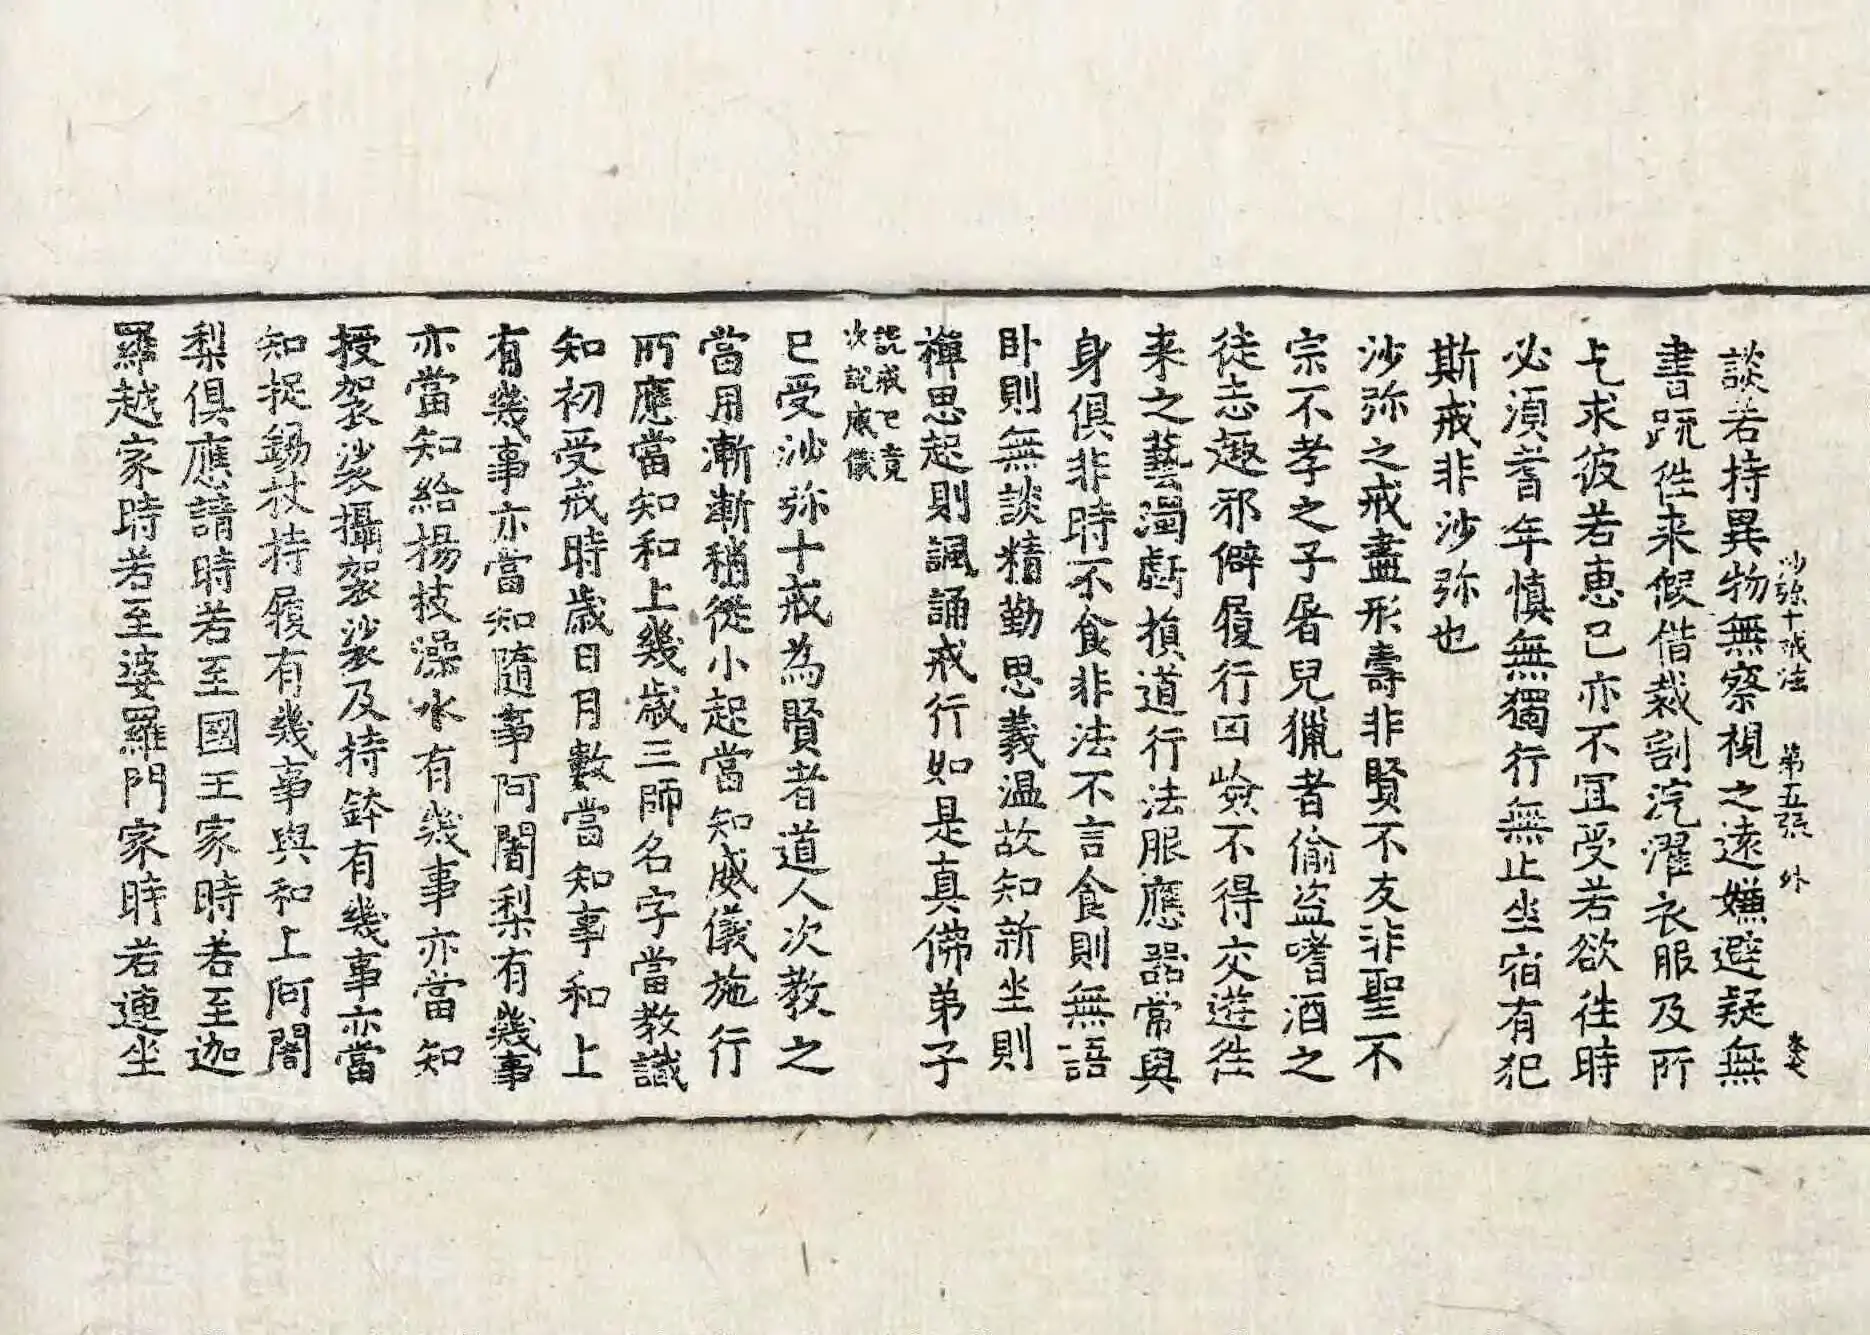 沙弥十戒法 第五張 外
談若持異物無察視之遠嫌避疑無
書䟽徃来假借裁割浣濯衣服及所
乞求彼若恵已亦不冝受若欲徃時
必湏耆年慎無獨行無止坐宿有犯
斯戒非沙弥也
沙弥之戒盡形壽非賢不友非聖不
宗不孝之子屠兒獵者偷盗嗜酒之
徒志趣邪僻履行凶嶮不得交遊徃
来之藝濁斵損道行法服應器常與
身俱非時不食非法不言食則無語
卧則無談精勤思義温故知新坐則
禅思起則諷誦戒行如是真佛弟子
說戒已竟
次說威儀
已受沙弥十戒為賢者道人次教之
當用漸漸稍從小起當知威儀施行
所應當知和上幾歲三師名字當教識
知初受戒時歲日月數當知事和上
有幾事亦當知隨事阿闍梨有幾事
亦當知給楊枝澡水有幾事亦當知
授袈裟攝袈裟及持鉢有幾事亦當
知捉錫杖持履有幾事與和上阿闍
梨俱應請時若至國王家時若至迦
羅越家時若至婆羅門家時若連坐